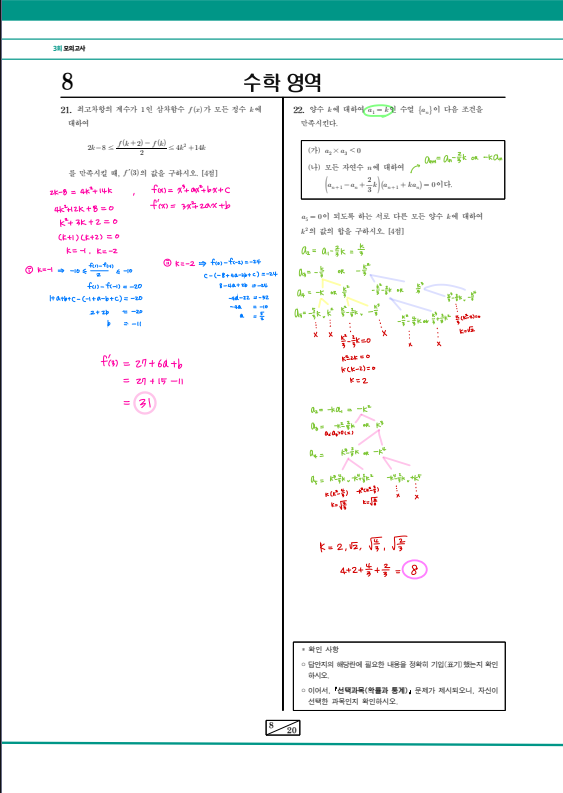 3회 모의고사
8
수학 영역
21. 최고차항의 계수가 1인 삼차함수 f(x)가 모든 정수 k에
대하여
2k-8 ≤ \frac{f(k+2)-f(k)}{2} ≤ 4k²+14k
를 만족시킬 때, f'(3)의 값을 구하시오. [4점]
2k-8 = 4k²+14k , f(x) = x³+ax²+bx+c
4k²+12k+8=0 f'(x) = 3x²+2ax+b
k²+3k+2=0
(k+1)(k+2)=0
k=-1, k=-2
① k=-1 ⇒ -10 ≤ \frac{f(1)-f(-1)}{2} ≤ -10
f(1)-f(-1) = -20
1+a+b+c-(-1+a-b+c) = -20
2+2b = -20
b = -11
② k=-2 ⇒ f(0)-f(-2) = -24
c-(-8+4a-2b+c) = -24
8-4a+2b = -24
-4a-22 = -32
-4a = -10
a = \frac{5}{2}
f'(3) = 27+6a+b
= 27+15-11
= 31
22. 양수 k에 대하여 a₁=k인 수열 {aₙ}이 다음 조건을
만족시킨다.
(가) a₂×a₃<0
(나) 모든 자연수 n에 대하여
aₙ₊₁=aₙ-\frac{2}{3}k or -kaₙ
(aₙ₊₁-aₙ+\frac{2}{3}k)(aₙ₊₁+kaₙ)=0이다.
a₅=0이 되도록 하는 서로 다른 모든 양수 k에 대하여
k²의 값의 합을 구하시오. [4점]
a₂ = a₁-\frac{2}{3}k = \frac{k}{3}
a₃ = -\frac{k}{3} or -\frac{k²}{3}
a₄ = -k or \frac{k²}{3} -\frac{k²}{3}-\frac{2}{3}k or \frac{k³}{3}
\frac{k²}{3}-\frac{2}{3}k=0
k²-2k=0
k(k-2)=0
k=2
k=√2
a₂ = -ka₁ = -k²
a₃ = -k²-\frac{2}{3}k or k³
a₂a₃>0(x)
a₄ = k³-\frac{2}{3}k or -k⁴
k = 2, √2, \sqrt{\frac{4}{3}}, \sqrt{\frac{2}{3}}
4+2+\frac{4}{3}+\frac{2}{3} = 8
* 확인 사항
○ 답안지의 해당란에 필요한 내용을 정확히 기입(표기)했는지 확인
하시오.
○ 이어서, 「선택과목(확률과 통계)」 문제가 제시되오니, 자신이
선택한 과목인지 확인하시오.
8
20